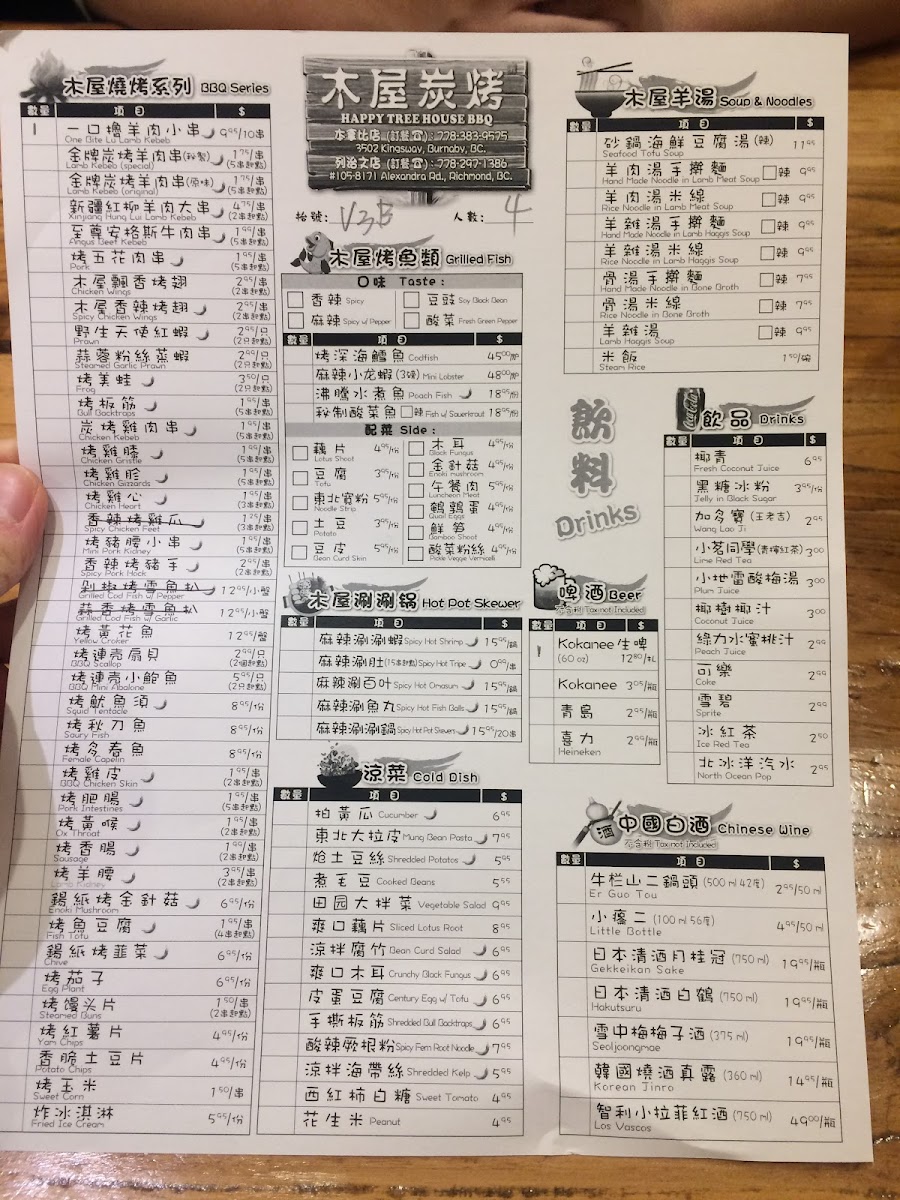 木屋燒烤系列 BBQ Series
數量 項目 $
1 一口擼羊肉小串 9⁹⁵/10串
One Bite Lu Lamb Kebeb
金牌炭烤羊肉串(秘製) 1⁷⁵/串
Lamb Kebeb (special) (5串起點)
金牌炭烤羊肉串(原味) 1⁷⁵/串
Lamb Kebeb (original) (5串起點)
新疆紅柳羊肉大串 4⁷⁵/串
Xinjiang Hung Lui Lamb Kebeb (2串起點)
至尊安格斯牛肉串 1⁹⁵/串
Angus Beef Kebeb (5串起點)
烤五花肉串 1⁹⁵/串
Pork (5串起點)
木屋飄香烤翅 2⁹⁵/串
Chicken Wings (2串起點)
木屋香辣烤翅 2⁹⁵/串
Spicy Chicken Wings (2串起點)
野生天使紅蝦 2⁹⁵/只
Prawn (2只起點)
蒜蓉粉絲蒸蝦 2⁹⁵/只
Steamed Garlic Prawn (2只起點)
烤美蛙 3⁵⁰/只
Frog (2只起點)
烤板筋 1⁹⁵/串
Bull Backtraps (5串起點)
炭烤雞肉串 1⁹⁵/串
Chicken Kebeb (5串起點)
烤雞膝 1⁹⁵/串
Chicken Gristle (5串起點)
烤雞胗 1⁹⁵/串
Chicken Gizzards (5串起點)
烤雞心 1⁹⁵/串
Chicken Heart (3串起點)
香辣烤雞爪
Spicy Chicken Feet (3串起點)
烤豬腰小串 1⁹⁵/串
Mini Pork Kidney (5串起點)
香辣烤豬手 2⁹⁵/串
Spicy Pork Hock (2串起點)
剁椒烤雪魚扒 12⁹⁵/小盤
Grilled Cod Fish w/ Pepper
蒜香烤雪魚扒 12⁹⁵/小盤
Grilled Cod Fish w/ Garlic
烤黃花魚 12⁹⁵/盤
Yellow Croker
烤連壳扇貝 2⁹⁹/只
BBQ Scallop (2個起點)
烤連壳小鮑魚 5⁹⁵/只
BBQ Mini Abalone (2只起點)
烤魷魚須 8⁹⁵/份
Squid Tentacle
烤秋刀魚 8⁹⁵/份
Saury Fish
烤多春魚 8⁹⁵/份
Female Capelin
烤雞皮 1⁹⁵/串
BBQ Chicken Skin (2串起點)
烤肥腸 1⁹⁵/串
Pork Intestines (5串起點)
烤黃喉 1⁹⁵/串
Ox Throat (2串起點)
烤香腸 1⁹⁹/串
Sausage (2串起點)
烤羊腰 3⁹⁵/串
Lamb Kidney (2串起點)
錫紙烤金針菇 6⁹⁵/份
Enoki Mushroom
烤魚豆腐 1⁹⁵/串
Fish Tofu (4串起點)
錫紙烤韭菜 6⁹⁵/份
Chive
烤茄子 6⁹⁵/份
Egg Plant
烤馒头片 1⁵⁰/串
Steamed Buns (2串起點)
烤紅薯片 4⁹⁵/份
Yam Chips
香脆土豆片 4⁹⁵/份
Potato Chips
烤玉米 1⁵⁰/串
Sweet Corn
炸冰淇淋 5⁹⁵/份
Fried Ice Cream
木屋炭烤
HAPPY TREE HOUSE BBQ
本拿比店 (訂餐☎): 778-383-9575
3502 Kingsway, Burnaby, BC.
列治文店 (訂餐☎): 778-297-1386
#105-8171 Alexandra Rd., Richmond, BC.
枱號: V3B 人數: 4
木屋烤魚類 Grilled Fish
口味 Taste:
香辣 Spicy 豆豉 Soy Black Bean
麻辣 Spicy w/ Pepper 酸菜 Fresh Green Pepper
數量 項目 $
烤深海鱈魚 Codfish 45⁰⁰/份
麻辣小龙蝦 (3磅) Mini Lobster 48⁰⁰/份
沸騰水煮魚 Poach Fish 18⁹⁵/份
秘制酸菜魚 辣 Fish w/ Sauerkraut 18⁹⁵/份
配菜 Side:
藕片 4⁹⁵/份 木耳 4⁹⁵/份
Lotus Shoot Black Fungus
豆腐 3⁹⁵/份 金針菇 4⁹⁵/份
Tofu Enoki mushroom
午餐肉 5⁹⁵/份
Luncheon Meat
東北寬粉 5⁹⁵/份 鵪鶉蛋 4⁹⁵/份
Noodle Strip Quail Eggs
土豆 3⁹⁵/份 鮮筍 4⁹⁵/份
Potato Bamboo Shoot
豆皮 5⁹⁵/份 酸菜粉絲 4⁹⁵/份
Bean Curd Skin Pickle Veggie Vermicelli
木屋涮涮锅 Hot Pot Skewer
數量 項目 $
麻辣涮涮蝦 Spicy Hot Shrimp 15⁹⁵/鍋
麻辣涮肚 (15串起點) Spicy Hot Tripe 0⁹⁹/串
麻辣涮百叶 Spicy Hot Omasum 15⁹⁵/鍋
麻辣涮魚丸 Spicy Hot Fish Balls 15⁹⁵/鍋
麻辣涮涮鍋 Spicy Hot Pot Skewers 15⁹⁵/20串
涼菜 Cold Dish
數量 項目 $
拍黃瓜 Cucumber 6⁹⁵
東北大拉皮 Mung Bean Pasta 7⁹⁵
炝土豆絲 Shredded Potatos 5⁹⁵
煮毛豆 Cooked Beans 5⁵⁵
田园大拌菜 Vegetable Salad 9⁹⁵
爽口藕片 Sliced Lotus Root 8⁹⁵
涼拌腐竹 Bean Curd Salad 6⁹⁵
爽口木耳 Crunchy Black Fungus 6⁹⁵
皮蛋豆腐 Century Egg w/ Tofu 6⁹⁵
手撕板筋 Shredded Bull Backtraps 6⁹⁵
酸辣厥根粉 Spicy Fern Root Noodle 7⁹⁵
涼拌海帶絲 Shredded Kelp 5⁹⁵
西紅柿白糖 Sweet Tomato 4⁹⁵
花生米 Peanut 4⁹⁵
木屋羊湯 Soup & Noodles
數量 項目 $
砂鍋海鮮豆腐湯(辣) 11⁹⁵
Seafood Tofu Soup
羊肉湯手擀麵 辣 9⁹⁵
Hand Made Noodle in Lamb Meat Soup
羊肉湯米線 辣 9⁹⁵
Rice Noodle in Lamb Meat Soup
羊雜湯手擀麵 辣 9⁹⁵
Hand Made Noodle in Lamb Haggis Soup
羊雜湯米線 辣 9⁹⁵
Rice Noodle in Lamb Haggis Soup
骨湯手擀麵 辣 7⁹⁵
Hand Made Noodle in Bone Broth
骨湯米線 辣 7⁹⁵
Rice Noodle in Bone Broth
羊雜湯 辣 9⁹⁵
Lamb Haggis Soup
米飯 1⁵⁰/碗
Steam Rice
飲料
Drinks
Coca-Cola
飲品 Drinks
數量 項目 $
椰青 6⁹⁵
Fresh Coconut Juice
黑糖冰粉 3⁹⁵/份
Jelly in Black Sugar
加多寶 (王老吉) 2⁹⁵
Wang Lao Ji
小茗同學(青檸紅茶) 3⁰⁰
Lime Red Tea
小地雷酸梅湯 3⁰⁰
Plum Juice
椰樹椰汁 3⁰⁰
Coconut Juice
綠力水蜜桃汁 2⁹⁹
Peach Juice
可樂 2⁹⁹
Coke
雪碧 2⁹⁹
Sprite
冰紅茶 2⁵⁰
Ice Red Tea
北冰洋汽水 2⁹⁵
North Ocean Pop
啤酒 Beer
不含稅 Tax not Included
數量 項目 $
1 Kokanee 生啤
(60 oz) 12⁸⁰/扎
Kokanee 3⁰⁵/瓶
青島 2⁹⁵/瓶
喜力 2⁹⁹/瓶
Heineken
酒
中國白酒 Chinese Wine
不含稅 Tax not Included
數量 項目 $
牛栏山二鍋頭 (500 ml 42度) 2⁹⁵/50 ml
Er Guo Tou
小瘪二 (100 ml 56度) 4⁹⁵/50 ml
Little Bottle
日本清酒月桂冠 (750 ml) 19⁹⁵/瓶
Gekkeikan Sake
日本清酒白鶴 (750 ml) 19⁹⁵/瓶
Hakutsuru
雪中梅梅子酒 (375 ml) 19⁹⁵/瓶
Seoljoongmae
韓國燒酒真露 (360 ml) 14⁹⁵/瓶
Korean Jinro
智利小拉菲紅酒 (750 ml) 49⁰⁰/瓶
Los Vascos